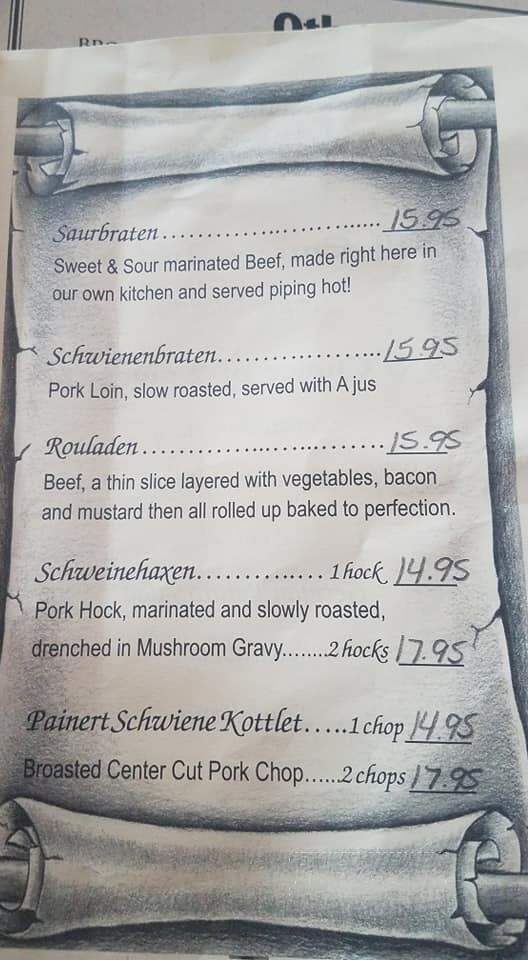 Saurbraten.......................... 15.95
Sweet & Sour marinated Beef, made right here in
our own kitchen and served piping hot!
Schwienenbraten.................... 15.95
Pork Loin, slow roasted, served with A jus
Rouladen............................ 15.95
Beef, a thin slice layered with vegetables, bacon
and mustard then all rolled up baked to perfection.
Schweinehaxen.............. 1 hock 14.95
Pork Hock, marinated and slowly roasted,
drenched in Mushroom Gravy.......2 hocks 17.95
Painert Schwiene Kottlet.....1 chop 14.95
Broasted Center Cut Pork Chop......2 chops 17.95